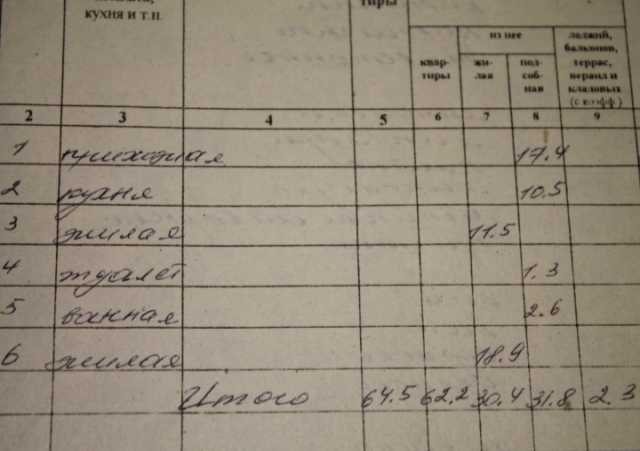 кухня и т.п.
тиры
из нее
лоджий,
балконов,
террас,
веранд и
кладовых
(с коэфф.)
квар-
тиры
жи-
лая
под-
соб-
ная
2 3 4 5 6 7 8 9
1 прихожая 17.4
2 кухня 10.5
3 жилая 11.5
4 туалет 1.3
5 ванная 2.6
6 жилая 18.9
Итого 64.5 62.2 30.4 31.8 2.3